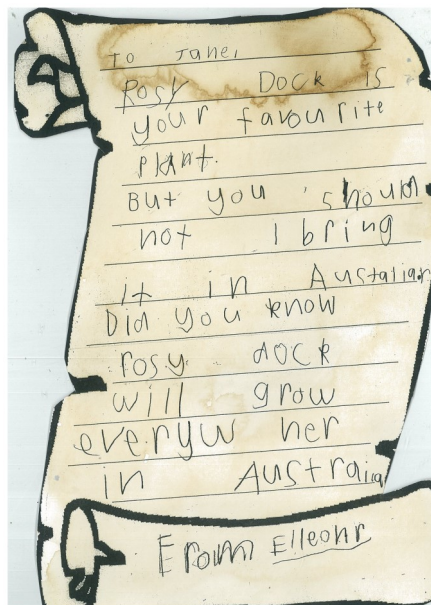 To Jane,
Rosy Dock is
your favourite
plant.
But you should
not bring
it in Austalian
Did you know
rosy dock
will grow
everyw her
in Australia
From Elleohr